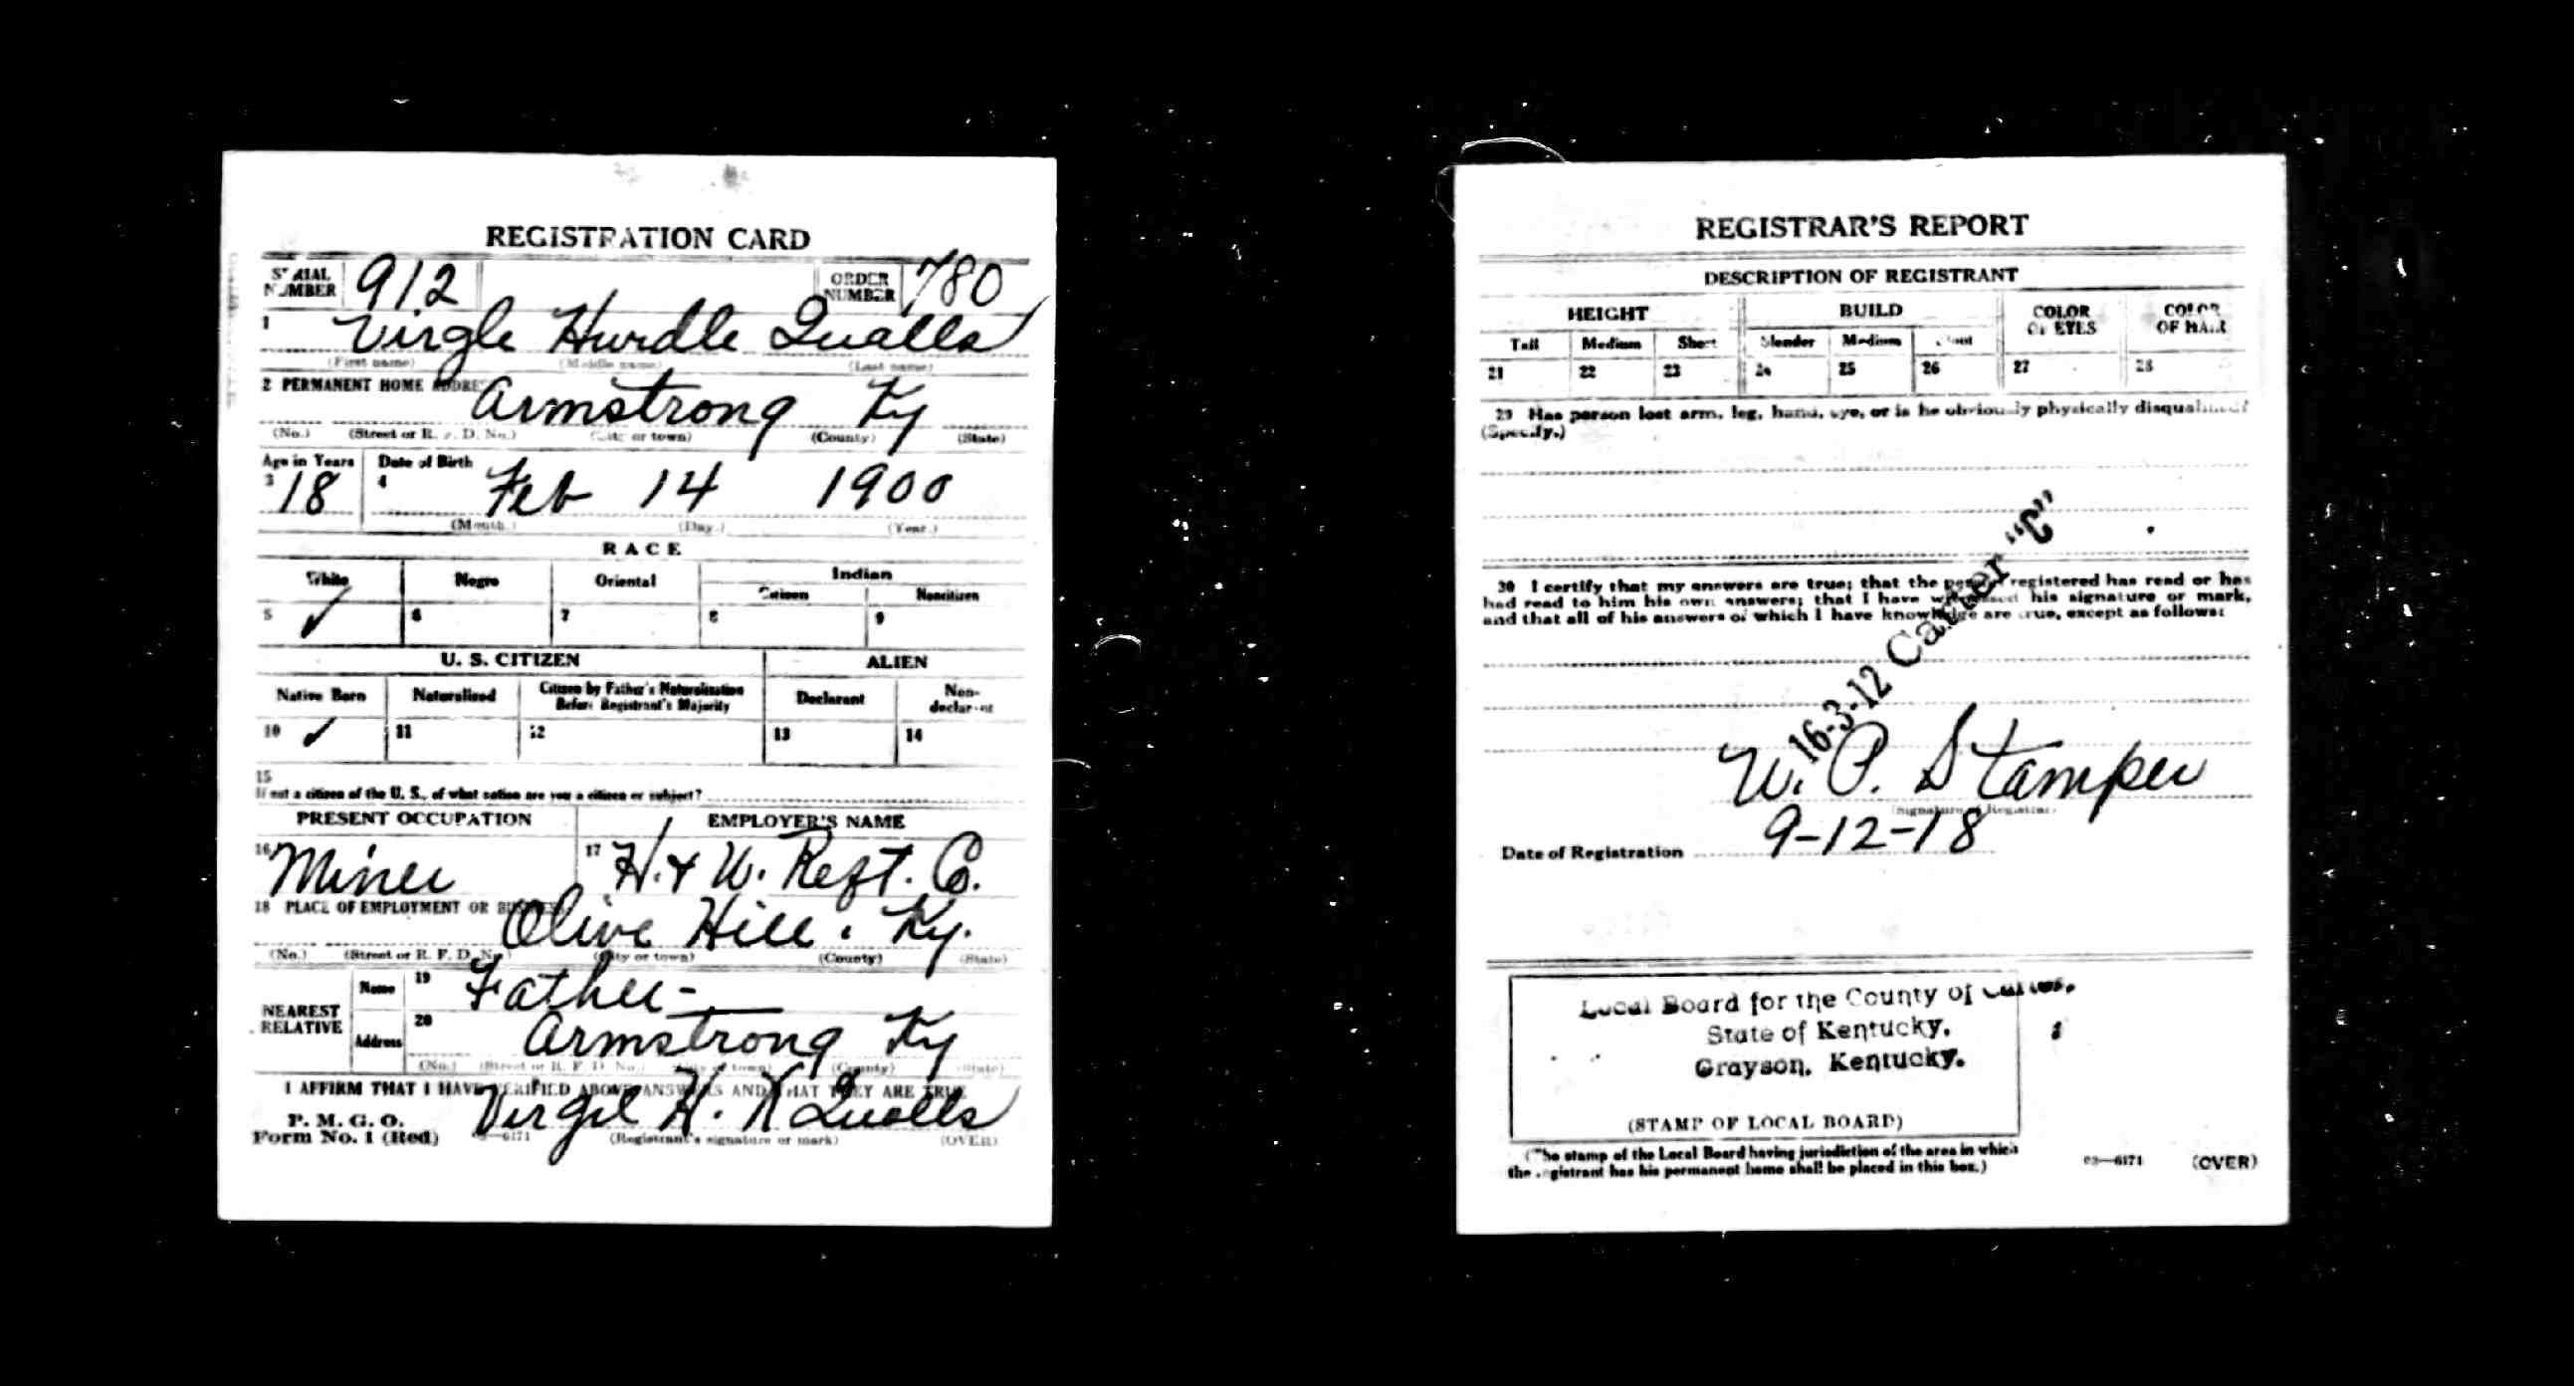 REGISTRATION CARD
SERIAL NUMBER 912 ORDER NUMBER 780
1 Virgle Hurdle Qualls
(First name) (Middle name) (Last name)
2 PERMANENT HOME ADDRE
Armstrong Ky
(No.) (Street or R. F. D. No.) (City or town) (County) (State)
Age in Years Date of Birth
3 18 4 Feb 14 1900
(Month.) (Day.) (Year.)
RACE
White Negro Oriental Indian
Citizen Noncitizen
5 ✓ 6 7 8 9
U. S. CITIZEN ALIEN
Native Born Naturalized Citizen by Father's Naturalization Before Registrant's Majority Declarant Non-declarant
10 ✓ 11 12 13 14
15
If not a citizen of the U. S., of what nation are you a citizen or subject?
PRESENT OCCUPATION EMPLOYER'S NAME
16 Miner 17 H. & W. Reft. Co.
18 PLACE OF EMPLOYMENT OR
Olive Hill. Ky.
(No.) (Street or R. F. D. No.) (City or town) (County) (State)
NEAREST RELATIVE
Name 19 Father-
Address 20 Armstrong Ky
(No.) (Street or R. F. D. No.) (City or town) (County) (State)
I AFFIRM THAT I HAVE VERIFIED ABOVE ANSWERS AND THAT THEY ARE TRUE
P. M. G. O.
Form No. 1 (Red) 03—6171 Virgil H. Qualls
(Registrant's signature or mark) (OVER)
REGISTRAR'S REPORT
DESCRIPTION OF REGISTRANT
HEIGHT BUILD COLOR OF EYES COLOR OF HAIR
Tall Medium Short Slender Medium Stout
21 22 23 24 25 26 27 28
29 Has person lost arm, leg, hand, eye, or is he obviously physically disqualified?
(Specify.)
30 I certify that my answers are true; that the person registered has read or has
had read to him his own answers; that I have witnessed his signature or mark,
and that all of his answers of which I have knowledge are true, except as follows:
16-3-12 Carter "C"
W. P. Stamper
(Signature of Registrar)
Date of Registration 9-12-18
Local Board for the County of Carter,
State of Kentucky,
Grayson, Kentucky.
(STAMP OF LOCAL BOARD)
(The stamp of the Local Board having jurisdiction of the area in which
the registrant has his permanent home shall be placed in this box.)
03—6171 (OVER)